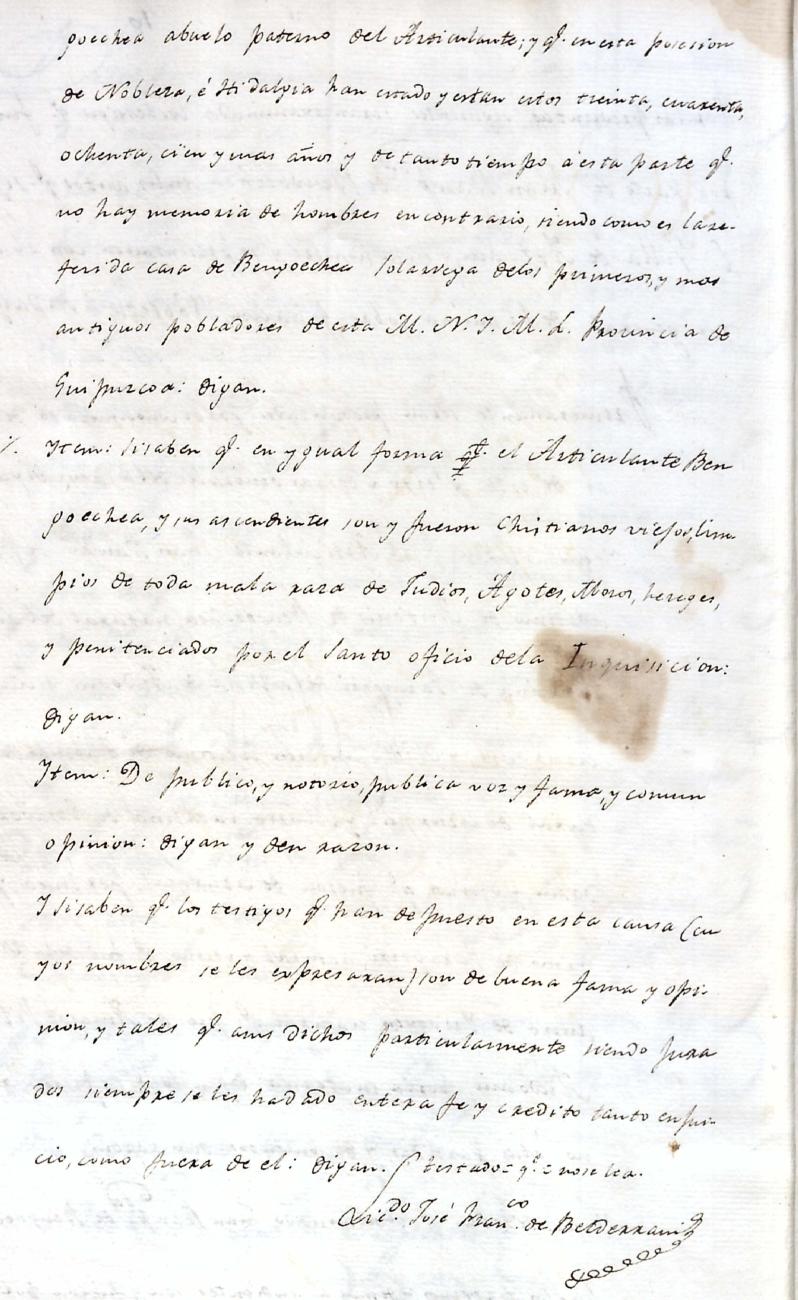 goechea abuelo paterno del Articulante; y qe. en esta posesion
de Nobleza, é Hidalguia han estado y estan estos treinta, cuarenta,
ochenta, cien y mas años y de tanto tiempo á esta parte qe.
no hay memoria de hombres en contrario, siendo como es la re-
ferida casa de Bengoechea solariega de los primeros, y mas
antiguos pobladores de esta M. N. Y. M. L. Provincia de
Guipuzcoa: digan.
Ytem: si saben qe. en ygual forma el Articulante Ben
goechea, y sus ascendientes son y fueron Christianos viejos, lim-
pios de toda mala raza de Judios, Agotes, Moros, hereges,
y penitenciados por el Santo oficio de la Inquisicion:
digan.
Ytem: De publico, y notorio, publica voz y fama, y comun
opinion: digan y den razon.
Y si saben qe. los testigos qe. han depuesto en esta causa (cu
yos nombres se les expresaran) son de buena fama y opi-
nion, y tales qe. a sus dichos particularmente siendo jura
dos siempre se les ha dado entera fe y credito tanto en jui-
cio, como fuera de el: digan. testado = qe. = no se lea.
Licdo. José Franco. de Belderrain